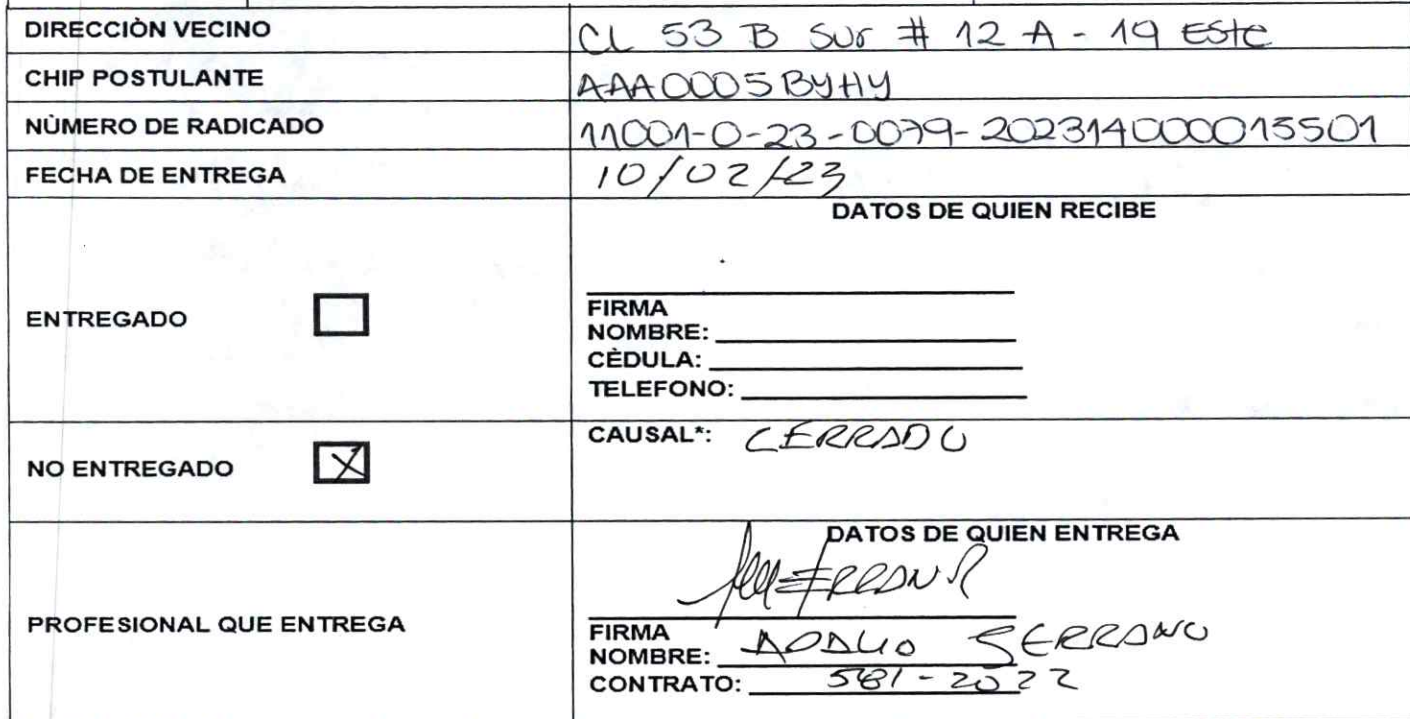 DIRECCIÒN VECINO CL 53 B SUR # 12 A - 19 ESte
CHIP POSTULANTE AAA0005BYHY
NÙMERO DE RADICADO 11001-0-23-0079-202314000015501
FECHA DE ENTREGA 10/02/23
DATOS DE QUIEN RECIBE
ENTREGADO
FIRMA
NOMBRE:
CÈDULA:
TELEFONO:
NO ENTREGADO X
CAUSAL*: CERRADO
DATOS DE QUIEN ENTREGA
PROFESIONAL QUE ENTREGA
FIRMA
NOMBRE: SERRANO
CONTRATO: 581-2022